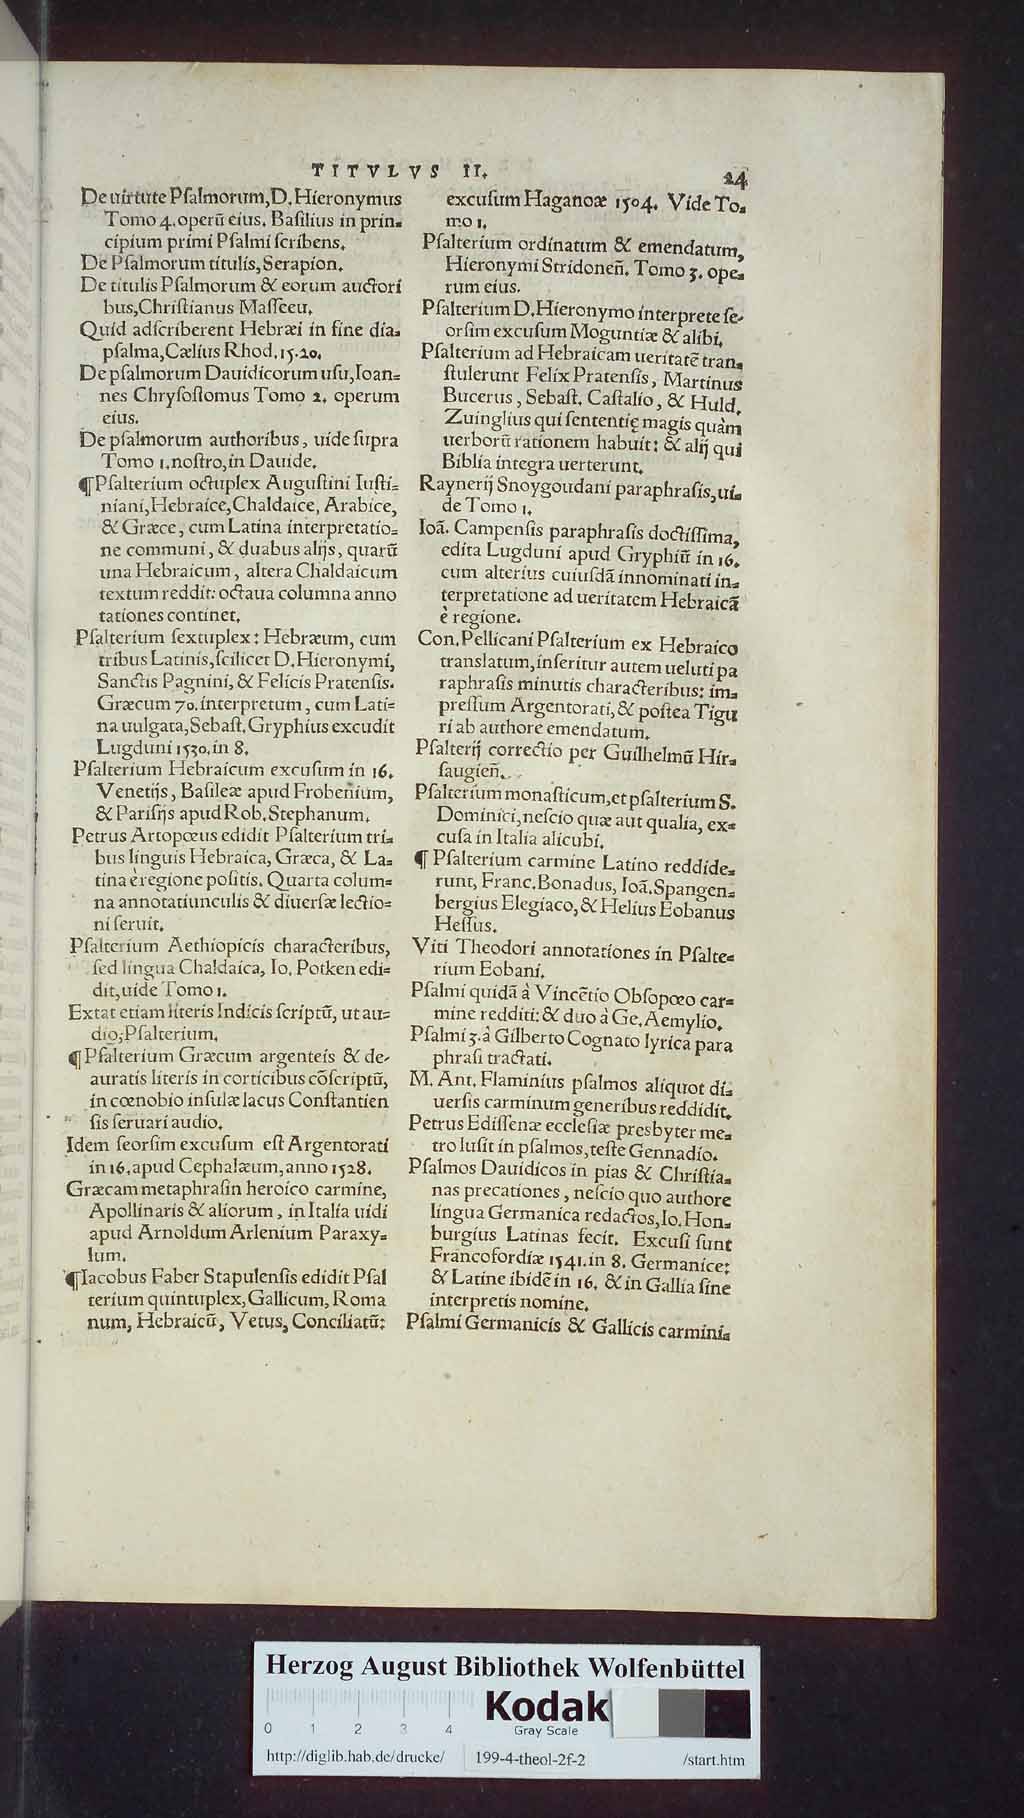 TITVLVS II.
24
De uirtute Pſalmorum, D. Hieronymus
Tomo 4. operũ eius. Baſilius in prin-
cipium primi Pſalmi ſcribens.
De Pſalmorum titulis, Serapion.
De titulis Pſalmorum & eorum auctori
bus, Chriſtianus Maſſceu.
Quid adſcriberent Hebræi in fine dia-
pſalma, Cælius Rhod. 15.20.
De pſalmorum Dauidicorum uſu, Ioan-
nes Chryſoſtomus Tomo 2. operum
eius.
De pſalmorum authoribus, uide ſupra
Tomo 1. noſtro, in Dauide.
¶Pſalterium octuplex Auguſtini Iuſti-
niani, Hebraice, Chaldaice, Arabice,
& Græce, cum Latina interpretatio-
ne communi, & duabus alijs, quarũ
una Hebraicum, altera Chaldaicum
textum reddit: octaua columna anno
tationes continet.
Pſalterium ſextuplex: Hebræum, cum
tribus Latinis, ſcilicet D. Hieronymi,
Sanctis Pagnini, & Felicis Pratenſis.
Græcum 70. interpretum, cum Lati-
na uulgata, Sebaſt. Gryphius excudit
Lugduni 1530. in 8.
Pſalterium Hebraicum excuſum in 16.
Venetijs, Baſileæ apud Frobenium,
& Pariſijs apud Rob. Stephanum.
Petrus Artopœus edidit Pſalterium tri-
bus linguis Hebraica, Græca, & La-
tina è regione poſitis. Quarta colum-
na annotatiunculis & diuerſæ lectio-
ni ſeruit.
Pſalterium Aethiopicis characteribus,
ſed lingua Chaldaica, Io. Potken edi-
dit, uide Tomo 1.
Extat etiam literis Indicis ſcriptũ, ut au-
dio, Pſalterium.
¶Pſalterium Græcum argenteis & de-
auratis literis in corticibus cõſcriptũ,
in cœnobio inſulæ lacus Conſtantien
ſis ſeruari audio.
Idem ſeorſim excuſum eſt Argentorati
in 16. apud Cephalæum, anno 1528.
Græcam metaphraſin heroico carmine,
Apollinaris & aliorum, in Italia uidi
apud Arnoldum Arlenium Paraxy-
lum.
¶Iacobus Faber Stapulenſis edidit Pſal
terium quintuplex, Gallicum, Roma
num, Hebraicũ, Vetus, Conciliatũ:
excuſum Haganoæ 1504. Vide To-
mo 1.
Pſalterium ordinatum & emendatum,
Hieronymi Stridoneñ. Tomo 3. ope-
rum eius.
Pſalterium D. Hieronymo interprete ſe-
orſim excuſum Moguntiæ & alibi.
Pſalterium ad Hebraicam ueritatẽ tran-
ſtulerunt Felix Pratenſis, Martinus
Bucerus, Sebaſt. Caſtalio, & Huld.
Zuinglius qui ſententię magis quàm
uerborũ rationem habuit: & alij qui
Biblia integra uerterunt.
Raynerij Snoygoudani paraphraſis, ui-
de Tomo 1.
Ioã. Campenſis paraphraſis doctiſſima,
edita Lugduni apud Gryphiũ in 16.
cum alterius cuiuſdã innominati in-
terpretatione ad ueritatem Hebraicã
è regione.
Con. Pellicani Pſalterium ex Hebraico
translatum, inſeritur autem ueluti pa
raphraſis minutis characteribus: im-
preſſum Argentorati, & poſtea Tigu
ri ab authore emendatum.
Pſalterij correctio per Guilhelmũ Hir-
ſaugieñ.
Pſalterium monaſticum, et pſalterium S.
Dominici, neſcio quæ aut qualia, ex-
cuſa in Italia alicubi.
¶ Pſalterium carmine Latino reddide-
runt, Franc. Bonadus, Ioã. Spangen-
bergius Elegiaco, & Helius Eobanus
Heſſus.
Viti Theodori annotationes in Pſalte-
rium Eobani.
Pſalmi quidã à Vincẽtio Obſopœo car-
mine redditi: & duo à Ge. Aemylio.
Pſalmi 3. à Gilberto Cognato lyrica para
phraſi tractati.
M. Ant. Flaminius pſalmos aliquot di-
uerſis carminum generibus reddidit.
Petrus Ediſſenæ eccleſiæ presbyter me-
tro luſit in pſalmos, teſte Gennadio.
Pſalmos Dauidicos in pias & Chriſtia-
nas precationes, neſcio quo authore
lingua Germanica redactos, Io. Hon-
burgius Latinas fecit. Excuſi ſunt
Francofordiæ 1541. in 8. Germanice:
& Latine ibidẽ in 16. & in Gallia ſine
interpretis nomine.
Pſalmi Germanicis & Gallicis carmini-
Herzog August Bibliothek Wolfenbüttel
Kodak
Gray Scale
0 1 2 3 4
http://diglib.hab.de/drucke/ 199-4-theol-2f-2 /start.htm